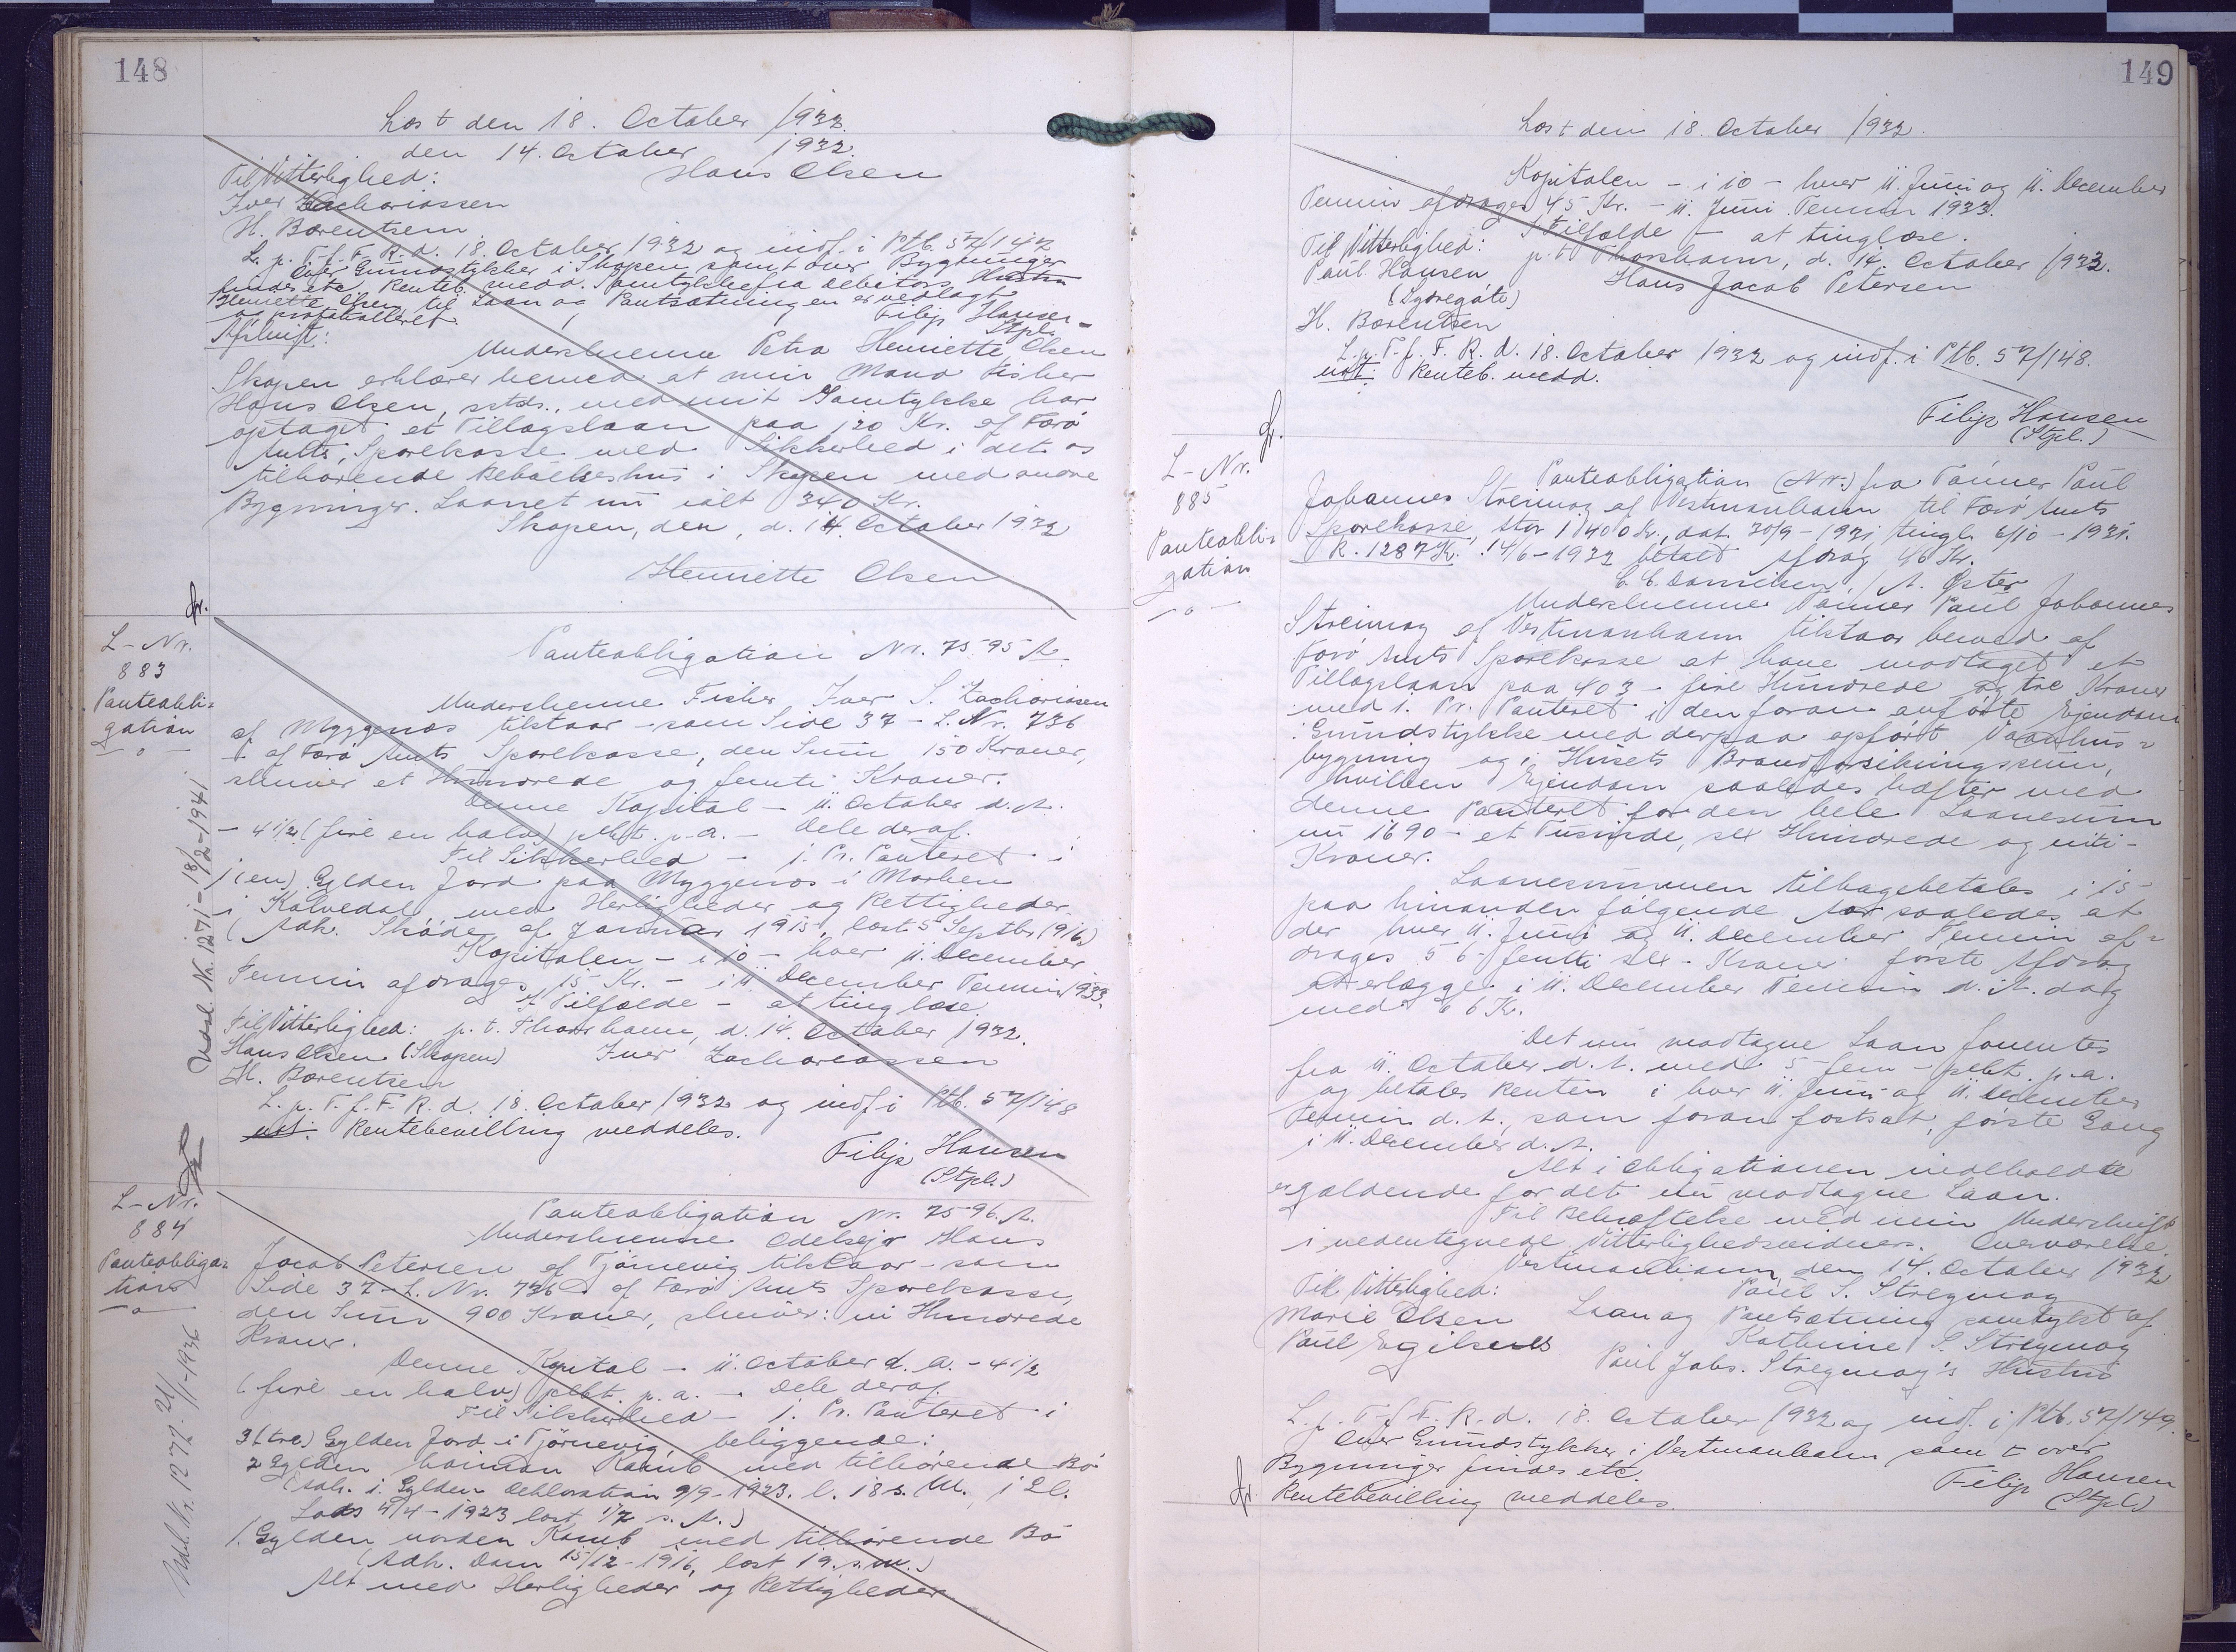 148
Læst den 18. October 1932.
den 14. October 1932.
Til Vitterlighed: Hans Olsen
Iver Zachariassen
H. Børentsen
L. p. T. f. F. R. d. 18. October 1932 og indf. i Ptb. 57/147
Over Grundstykker i Skopen samt over Bygninger
findes etc. Renteb. medd. Samtykke fra Debitors Hustru
Henriette Olsen til Laan og Pantsætningen er vedlagt
og protokolleret. Filip Hansen
Stpl.
Afskrift:
Underskrevne Petra Henriette Olsen
Skopen erklærer herved at min Mand Fisker
Hans Olsen, sstds., med mit Samtykke har
optaget et Tillægslaan paa 120 Kr. af Færø
Amts Sparekasse med Sikkerhed i det os
tilhørende Beboelseshus i Skopen med andre
Bygninger. Laanet nu ialt 340 Kr.
Skopen, den, d. 14. October 1932
Henriette Olsen
L-Nr.
883
Panteobli-
gation
— " —
Udsl. Nr. 1271 - 18/2-1941
Panteobligation Nr. 7595 A.
Underskrevne Fisker Iver S. Zachariasen
af Myggenæs tilstaar - som Side 37 - L. Nr. 736
- af Færø Amts Sparekasse, den Sum 150 Kroner,
skriver et Hundrede og femti Kroner.
Denne Kapital - 11. October d. A.
- 4 1/2 (fire en halv) pCt. p. a. - Dele deraf.
Til Sikkerhed - 1. Pr. Panteret i
1 (en) Gylden Jord paa Myggenæs i Marken
i Kalvedal, med Herligheder og Rettigheder
(Adk. Skøde af Januar 1915, læst 5 Septbr. 1916)
Kapitalen - i 10 - hver 11. December
Termin afdrages 15 Kr. - i 11 December Termin 1933.
I Tilfælde - at tinglæse.
Til Vitterlighed: p. t. Thorshavn, d. 14. October 1932.
Hans Olsen (Skopen) Iver Zachariassen
H. Børentsen
L. p. T. f. F. R. d. 18. October 1932 og indf. i Ptb. 57/148
Rentebevilling meddeles.
Filip Hansen
(Stpl.)
L-Nr.
884
Panteobliga-
tion
— " —
Udsl. Nr. 1272. 21/1-1936
Panteobligation Nr. 7596. A.
Underskrevne Odelsejer Hans
Jacob Petersen af Tjørnevig tilstaar - som
Side 37 - L. Nr. 736 - af Færø Amts Sparekasse,
den Sum 900 Kroner, skriver: ni Hundrede
Kroner.
Denne Kapital - 11. October d. A. - 4 1/2
(fire en halv) pCt. p. a. - Dele deraf.
Til Sikkerhed - 1. Pr. Panteret i
3 (tre) Gylden Jord i Tjørnevig, beliggende:
2 Gylden heiman Kamb med tilhørende Bø
(adk. 1. Gylden Deklaration 9/9 - 1923. l. 18 s. M., 1 Gl.
1923 læst s. A.)
1 Gylden norden Kamb med tilhørende Bø
(Adk. Dom 15/12 - 1916, læst 19. s. m.)
Alt med Herligheder og Rettigheder
149
Læst den 18. October 1932.
Kapitalen - i 10 - hver 11. Juni og 11. December
Termin afdrages 45 Kr. - 11. Juni Termin 1933.
I Tilfælde - at tinglæse.
Til Vitterlighed: p. t. Thorshavn, d. 14. October 1932.
Paul Hansen Hans Jacob Petersen
(Sydregøte)
H. Børentsen
L. p. T. f. F. R. d. 18. October 1932 og indf. i Ptb. 57/148.
Renteb. medd.
Filip Hansen
(Stpl.)
L-Nr.
885
Panteobli-
gation
— " —
Panteobligation (Nr.) fra Tømrer Paul
Johannes Streimoy af Vestmanhavn til Færø Amts
Sparekasse, stor 1400 Kr., dat. 30/9 - 1931, tingl. 6/10 - 1931.
R. 1287 Kr. 14/6 - 1932 betalt Afdrag 46 Kr.
C. C. Danielsen, A. Øster
Underskrevne Tømrer Paul Johannes
Streimoy af Vestmanhavn tilstaar herved af
Færø Amts Sparekasse at have modtaget et
Tillægslaan paa 403 - fire Hundrede og tre Kroner
med 1. Pr. Panteret i den foran anførte Ejendom
: Grundstykke med derpaa opført Vaanhus-
bygning og i Husets Brandforsikringssum,
hvilken Ejendom saaledes hæfter med
denne Panteret for den hele Laanesum
nu 1690 - et Tusinde, sex Hundrede og niti -
Kroner.
Laanesummen tilbagebetales i 15
paa hinanden følgende Aar saaledes at
der hver 11. Juni og 11. December Termin af-
drages 56 - femti sex - Kroner første Afdrag
at erlægge i 11. December Termin d. A. dog
med 66 Kr.
Det nu modtagne Laan forrentes
fra 11. October d. A. med 5 - fem - pCt. p. a.
og betales Renten i hver 11. Juni og 11. December
Termin d. A., som foran fastsat, første Gang
i 11. December d. A.
Alt i Obligationen indeholdte
er gældende for det nu modtagne Laan.
Til Bekræftelse med min Underskrift
i nedentegnede Vitterlighedsvidners Overværelse.
Vestmanhavn, den 14. October 1932
Til Vitterlighed: Paul S. Streymoy
Marie Olsen Laan og Pantsætning samtykt af
Paul Egilsnes Kathrine S. Streymoy
Paul Johs. Streymoy's Hustru
L. p. T. f. F. R. d. 18. October 1932 og indf. i Ptb. 57/149.
Over Grundstykker i Vestmanhavn samt over
Bygninger findes etc. Filip Hansen
Rentebevilling meddeles. (Stpl.)